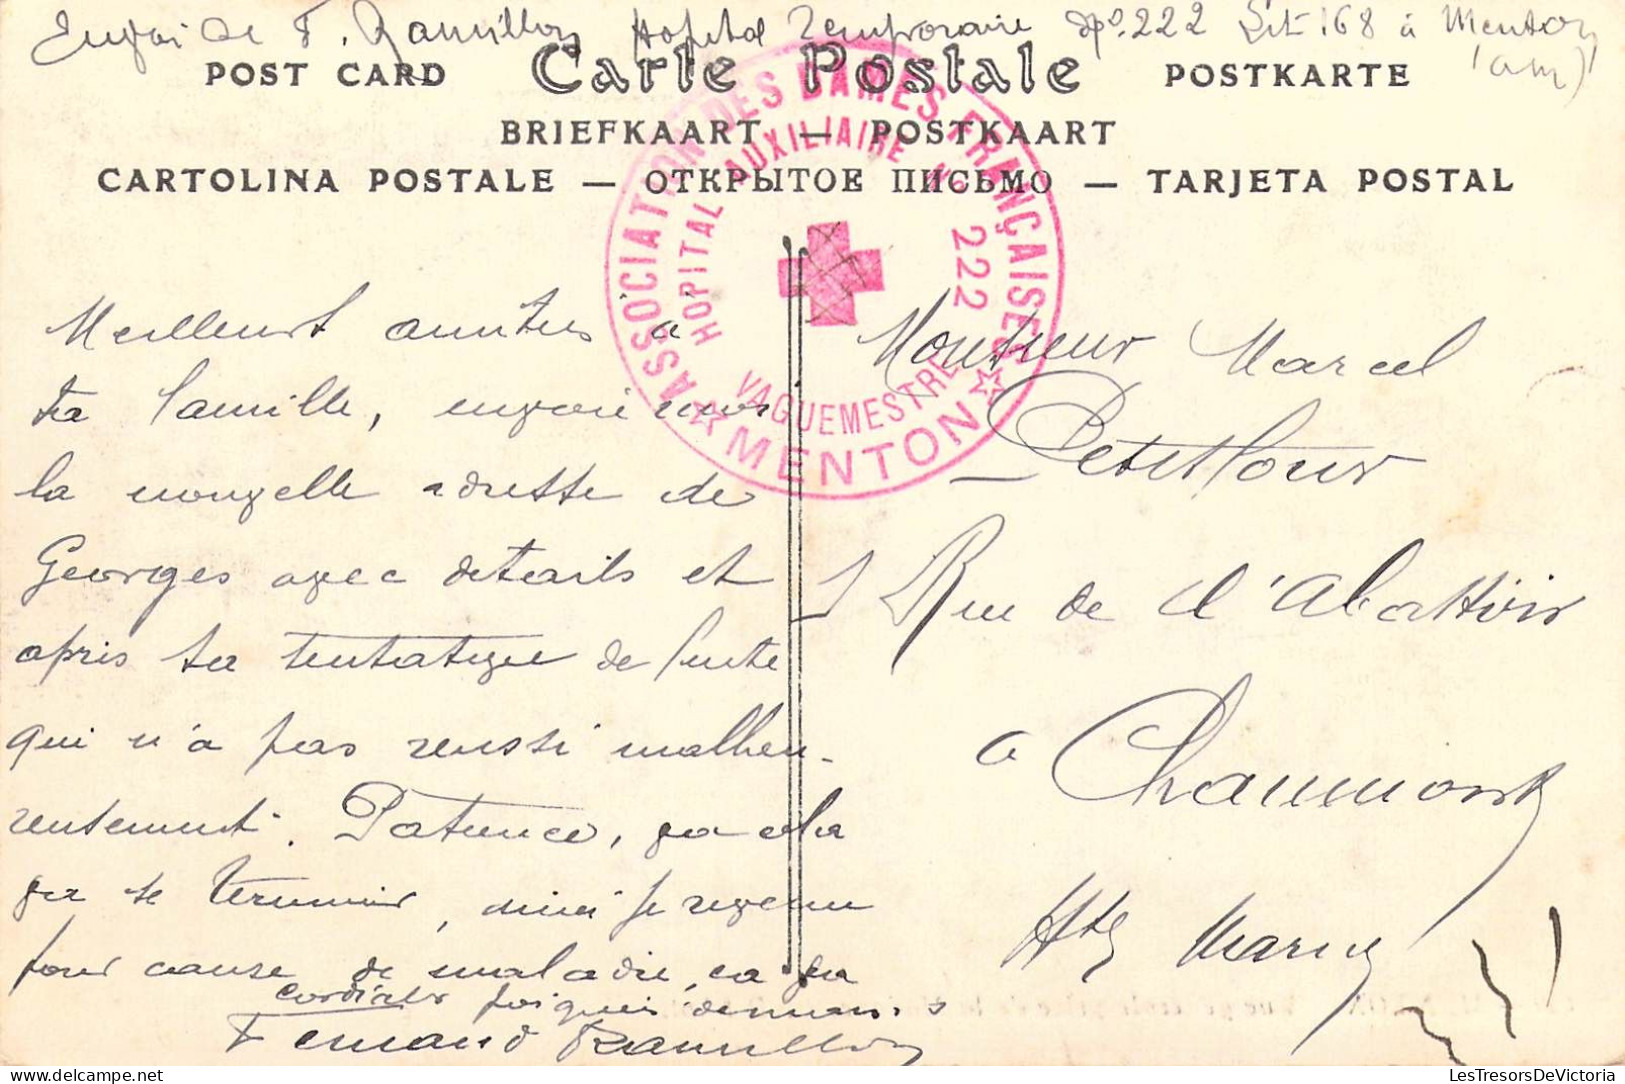 Envoi de F. Ramillon Hopital Temporaire Dpe. 222 Lit 168 à Menton
(am)
POST CARD Carte Postale POSTKARTE
BRIEFKAART — POSTKAART
CARTOLINA POSTALE — ОТКРЫТОЕ ПИСЬМО — TARJETA POSTAL
ASSOCIATION DES DAMES FRANÇAISES
HOPITAL AUXILIAIRE No 222
VAGUEMESTRE
MENTON
Meilleurs amitiés à
ta famille, envoie moi
la nouvelle adresse de
Georges avec details et
après sa tentative de fuite
qui n'a pas reussi malheu-
reusement. Patience,
se terminer, je
pour cause de maladie,
cordiale
Fernand Ramillon
Monsieur Marcel
Petitfour
1 Rue de l'Abattoir
a Chaumont
Hte Marne
LesTresorsDeVictoria